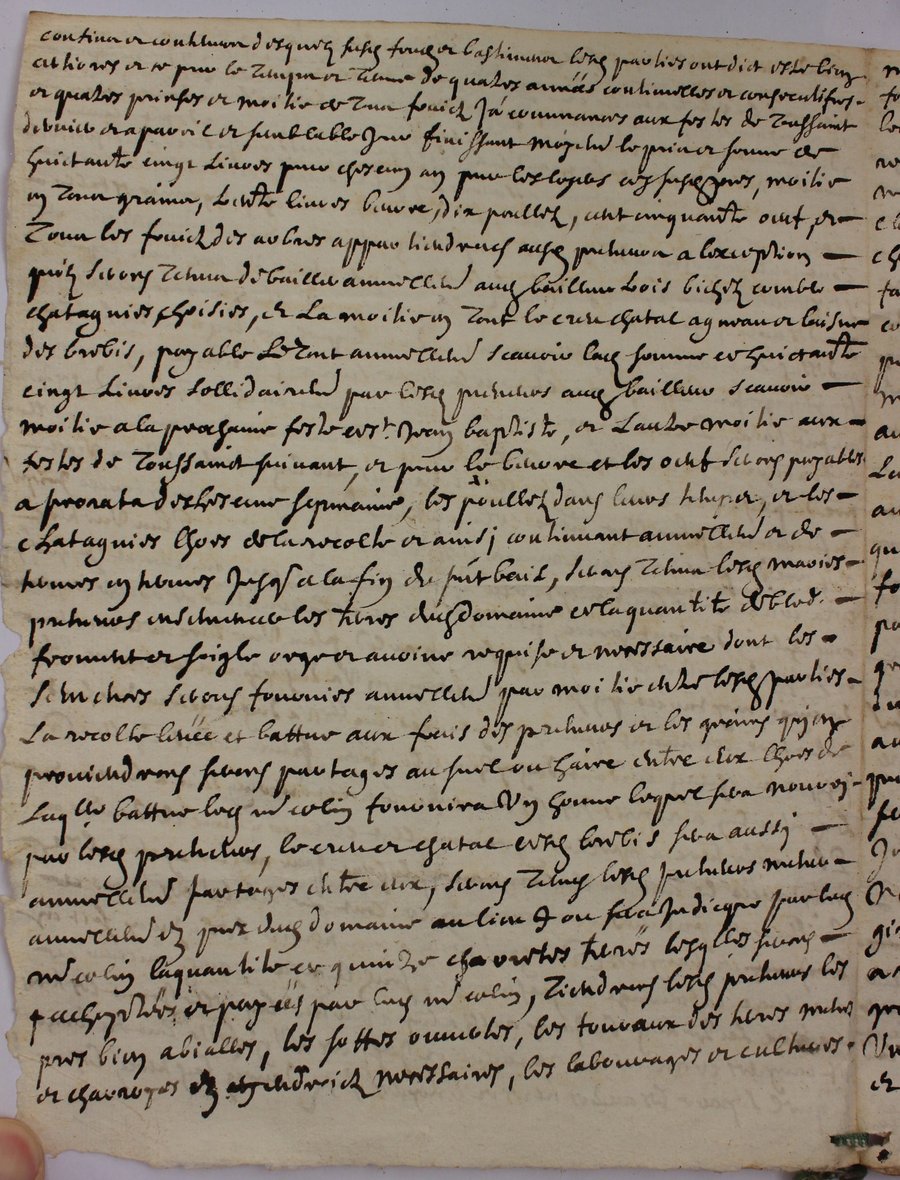 contenu et contenance desquelz susd fonds et bastiment lesd parties ont dict estre bien
et ce pour le temps et terme de quatres années continuelles et consecutifves
et quatres prinses et moitie de tous fruictz Jà commances aux festes de Toussainct
dernier et a pareil et semblable Jour finissant moyen le prix et somme de
huictante cinq Livres pour chescun an pour les susd moitie
en tous grains, trente livres beurre, dix poulles, cent cinquante oeuf, et
Tous les fruictz des arbres appartiendront ausd preneurs a lexception
seront tenus de bailler annuellem ausd bailleur trois bichez comble
chatagnies choisies, et La moitie en tout le creu chatal agneau et laisne
des brebis, payable Le tout annuellem scavoir lad somme de huictante
cinq Livres sollidairem par lesd preneurs aud bailleur scavoir
moitie a la prochaine feste de st Jean baptiste, et Lautre moitie aux
festes de Toussainct suivant, et pour le beurre et les oeuf seront payables
a prorata de chescune sepmaine, les poulles dans leurs temps, et les
chatagnies lhors de la recolte et ainsi continuant annuellem et de
termes en termes Jusq a la fin du pnt bail, seront tenus lesd maries
preneurs densemencer les terres dud domaine de la quantite de bled
froment et seigle orge et avoine requise et necessaire dont les
semences seront fournies annuellem par moitie entre lesd parties
La recolte levée et battue aux frais des preneurs et les grains quj en
proviendront seront partages au suel ou haire entre eux lhors de
Laqlle battue led colin fournira Un homme lequel sera nourrj
par lesd preneurs, le creu et chatal desd brebis sera aussj
annuellem partages entre eux, seront tenus lesd preneurs
annuellem es prez dud domaine au lieu ou sera Indicque par led
colin la quantite de quinze terres lesqlles seront
et payées par led colin, Tiendront lesd preneurs les
pres bien abialles, les fosses ouvertes, les terreaux des terres
et charroyes es endroictz necessaires, les labourages et cultures